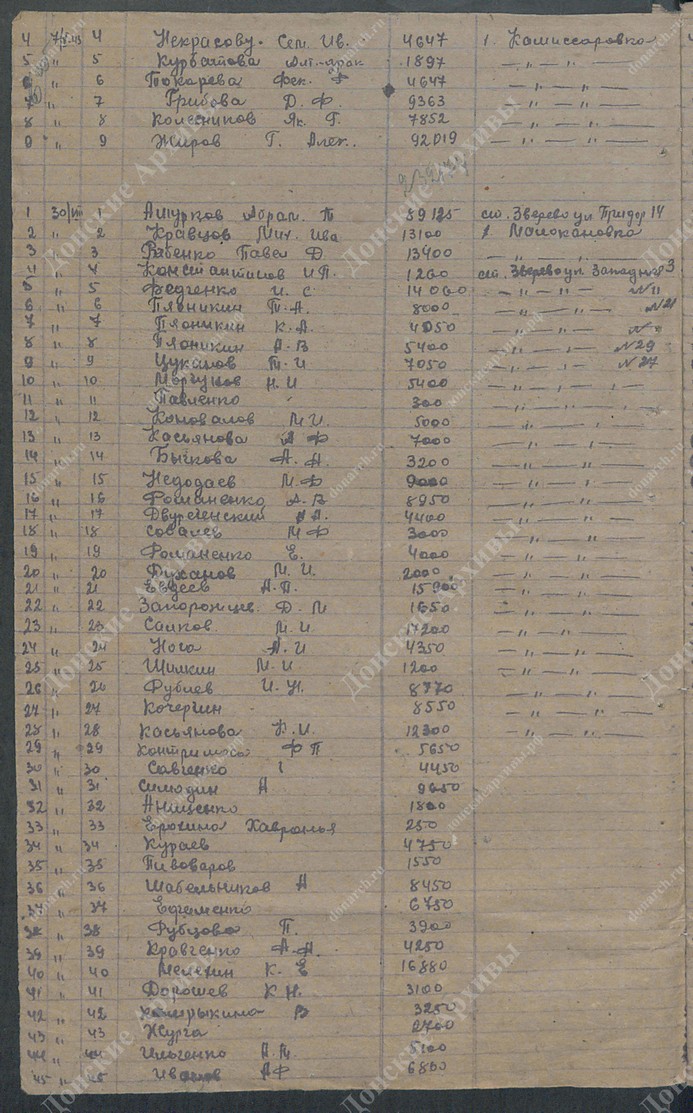 4 7/VI-43 4 Некрасову. Сем. Ив. 4647 1. Комиссаровка
5 " 5 Курбатова 1897 — " — " —
6 " 6 Токарева Фек. 4647 — " — " —
7 " 7 Грибова Д. Ф. 9363 — " — " —
8 " 8 Колесников Як. Г. 7852 — " — " —
9 " 9 Жиров Г. Алек. 92019 — " — " —
1 30/VIII 1 Ашурков Абрам. Т 89125 ст. Зверево ул 14
2 " 2 Кравцов Мих. Ива 13100 Молокановка
3 " 3 Рябенко Павел Д 13400 — " — " —
4 " 4 Константинов И.П. 1200 ст. Зверево ул. Западная 3
5 " 5 Федченко И. С 14000 — " — " — N 11
6 " 6 Пяникин Т.А. 8000 — " — " — N 21
7 " 7 Пяникин К.А. 4050 — " — " —
8 " 8 Пяникин А.В 5400 — " — " — N 29
9 " 9 Цуканов Т.И 7050 — " — " — N 27
10 " 10 Моргунов Н.И 5400 — " — " —
11 " 11 Павленко 300 — " — " —
12 " 12 Коновалов М.И. 5000 — " — " —
13 " 13 Касьянова А Ф 7000 — " — " —
14 " 14 Бычкова А. А. 3200 — " — " —
15 " 15 Недодаев М.Ф 9000 — " — " —
16 " 16 Романенко А.В 8950 — " — " —
17 " 17 Двуреченский 4400 — " — " —
18 " 18 М Ф 3000 — " — " —
19 " 19 Романенко Е. 4000 — " — " —
20 " 20 Духанов М.И. 2000 — " — " —
21 " 21 Евдеев А.П. — " — " —
22 " 22 Запорожцев. Д. М 1650 — " — " —
23 " 23 М.И. 17200 — " — " —
24 " 24 Нога А.И 4350 — " — " —
25 " 25 Шилкин М.И. 1200 — " — " —
26 " 26 И. Н. 8770 — " — " —
27 " 27 Кочергин 8550 — " — " —
28 " 28 Касьянова 12300 — " — " —
29 " 29 Ф П 5650
30 " 30 Савченко 4450
31 " 31 Симодин А 9650
32 " 32 Анищенко 1800
33 " 33 Ерохина Хавронья 250
34 " 34 Кураев 4750
35 " 35 Пивоваров 1550
36 " 36 Шабельников А 8450
37 " 37 Ефременко 6750
38 " 38 Рубцова П. 3900
39 " 39 Кравченко А.А. 4250
40 " 40 К. Е 16880
41 " 41 Дорошев К Н. 3100
42 " 42 В 3250
43 " 43 Журга 2700
44 " 44 Ильченко А.М. 5100
45 " 45 АФ 6800
Донские Архивы
donarch.ru
донскиеархивы.рф